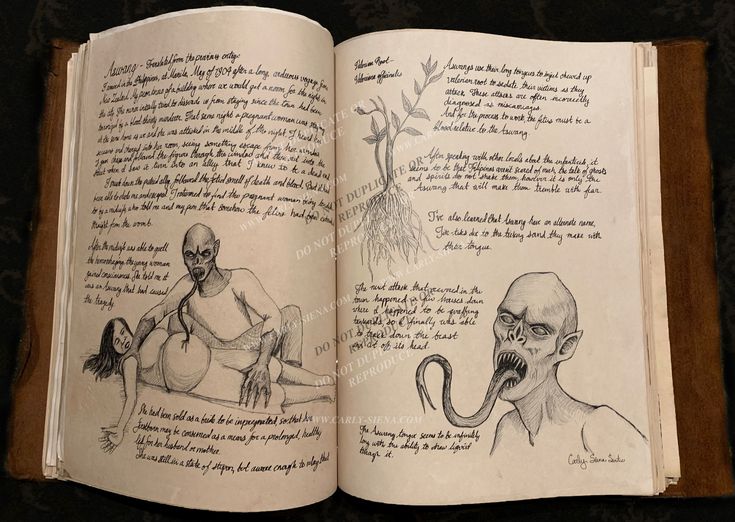 Aswang - Translated from the previous entry:
I arrived in the Philippines, at Manila, May of 1804 after a long, arduous voyage from
My pen knew of a building where we could get a room for the night in
the city. The nuns initially tried to dissuade us from staying since the town had been
terrorized by a blood thirsty murderer. That same night a pregnant woman was staying
at the same home as we and she was attacked in the middle of the night. I heard her
screams and charged into her room, seeing something escape from her window.
I gave chase and followed the figure through the window and then out into the
street where it turn into an alley that I knew to be a dead end.
I went down the putrid alley, followed the fetid smell of death and blood. But it had
been able to elude me and escaped. I returned to find the pregnant woman being tended
to by a midwife who told me and my pen that somehow the fetus had been eaten
straight from the womb.
After the midwife was able to quell
the hemorrhaging the young woman
gained consciousness. She told me it
was an Aswang that had caused
the tragedy.
She had been sold as a bride to be impregnated, so that her
firstborn may be consumed as a means for a prolonged, healthy
life for her husband or mother.
She was still in a state of stupor, but aware enough to relay that
Valerian Root -
Valeriana officinalis
Aswangs use their long tongues to inject chewed up
valerian root to sedate their victims as they
attack. These attacks are often incorrectly
diagnosed as miscarriages.
And for the process to work, the fetus must be a
blood relative to the Aswang.
After speaking with other locals about the infanticide, it
seems to be that Filipinos aren't scared of much, the tale of ghosts
and spirits do not shake them, however it is only the
Aswang that will make them tremble with fear.
I've also learned that Aswang have an alternate name,
Tik-tiks due to the ticking sound they make with
their tongue.
The next attack that occurred in the
town happened a few houses down
where I happened to be walking
towards, so I finally was able
to track down the beast
and cut off its head.
The Aswang tongue seems to be infinitely
long with the ability to draw liquid
through it.
Carly-Siena
DO NOT DUPLICATE OR
REPRODUCE
WWW.CARLY-SIENA.COM